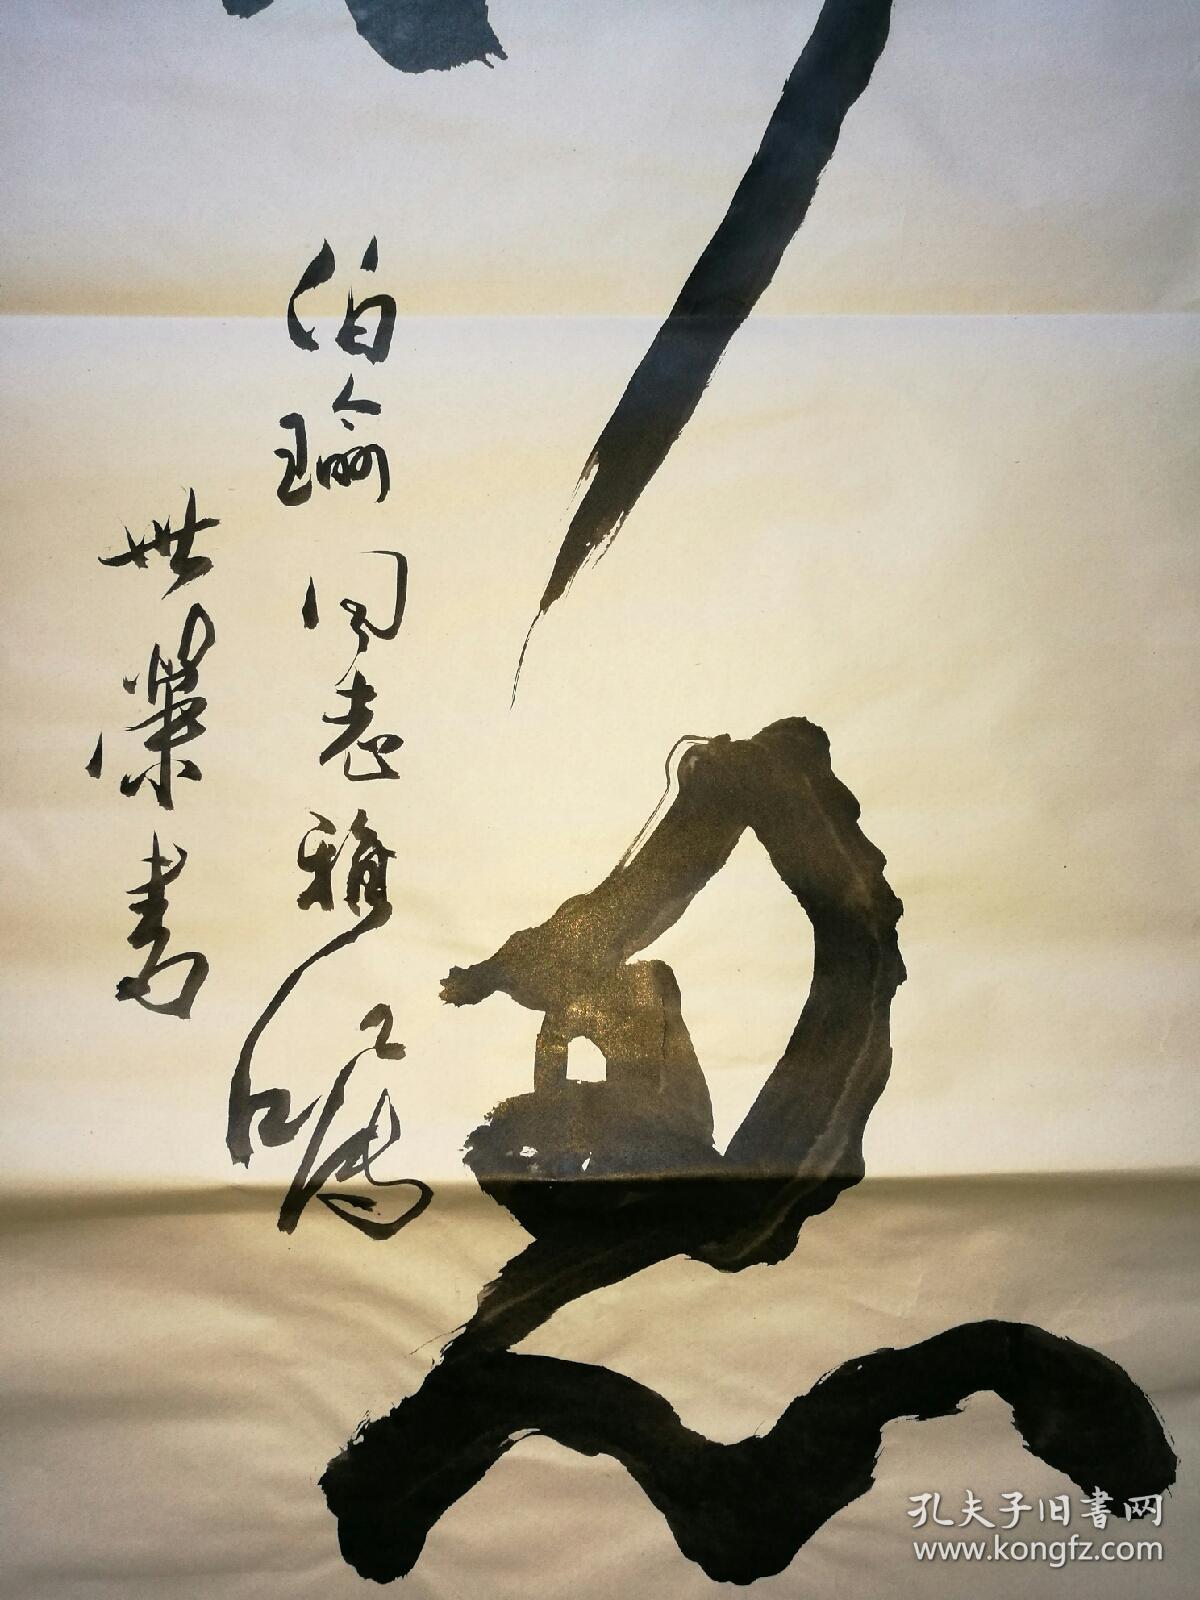 伯瑜同志雅嘱
世荣书
孔夫子旧書网
www.kongfz.com